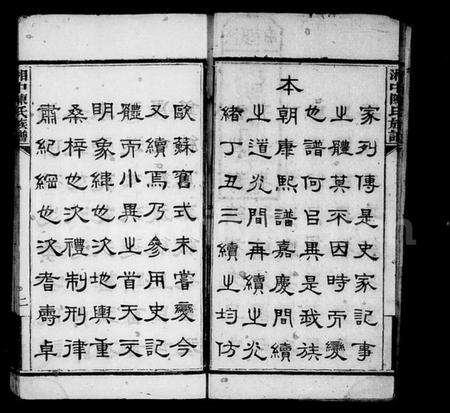 家列傳是史家記事
之體莫不因時而變
也譜何㠯異是我族
本
朝康熙譜嘉慶間續
之道光間再續之光
緒丁丑三續之均仿
歐蘇舊式未嘗變今
又續焉乃參用史記
體而小異之首天文
明象緯也次地輿重
桑梓也次禮制刑律
肅紀綱也次耆壽卓
湘中陳氏族譜